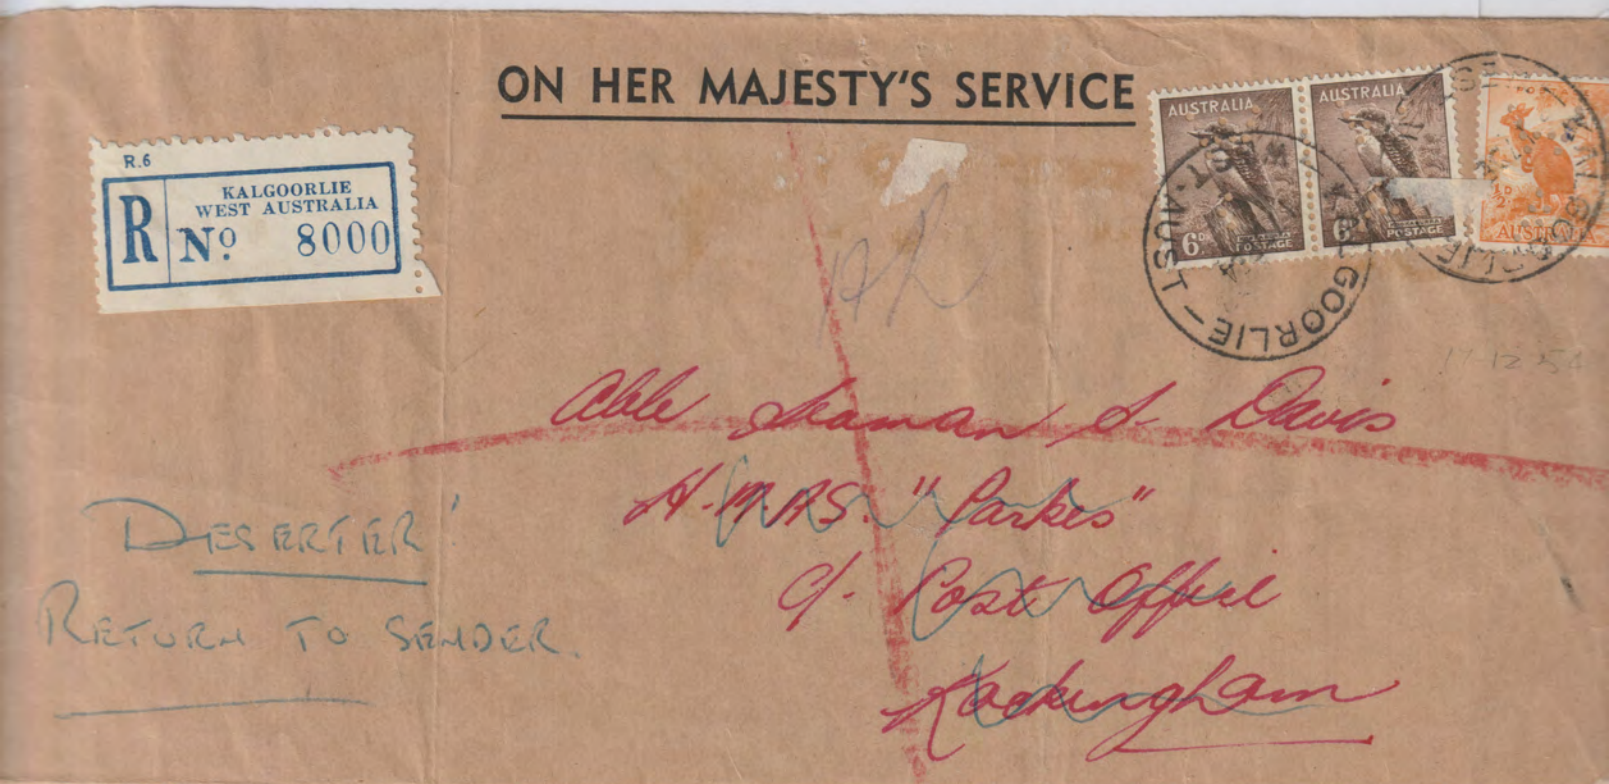 ON HER MAJESTY'S SERVICE
R.6
R
KALGOORLIE
WEST AUSTRALIA
No. 8000
AUSTRALIA
6D
POSTAGE
AUSTRALIA
6
POSTAGE
½D
AUSTRALIA
KALGOORLIE – WEST. AUST
KALGOORLIE
AR
17-12-5
Able Seaman S. Davis
H.M.A.S. "Parkes"
c/- Post Office
Rockingham
DESERTER'
RETURN TO SENDER.